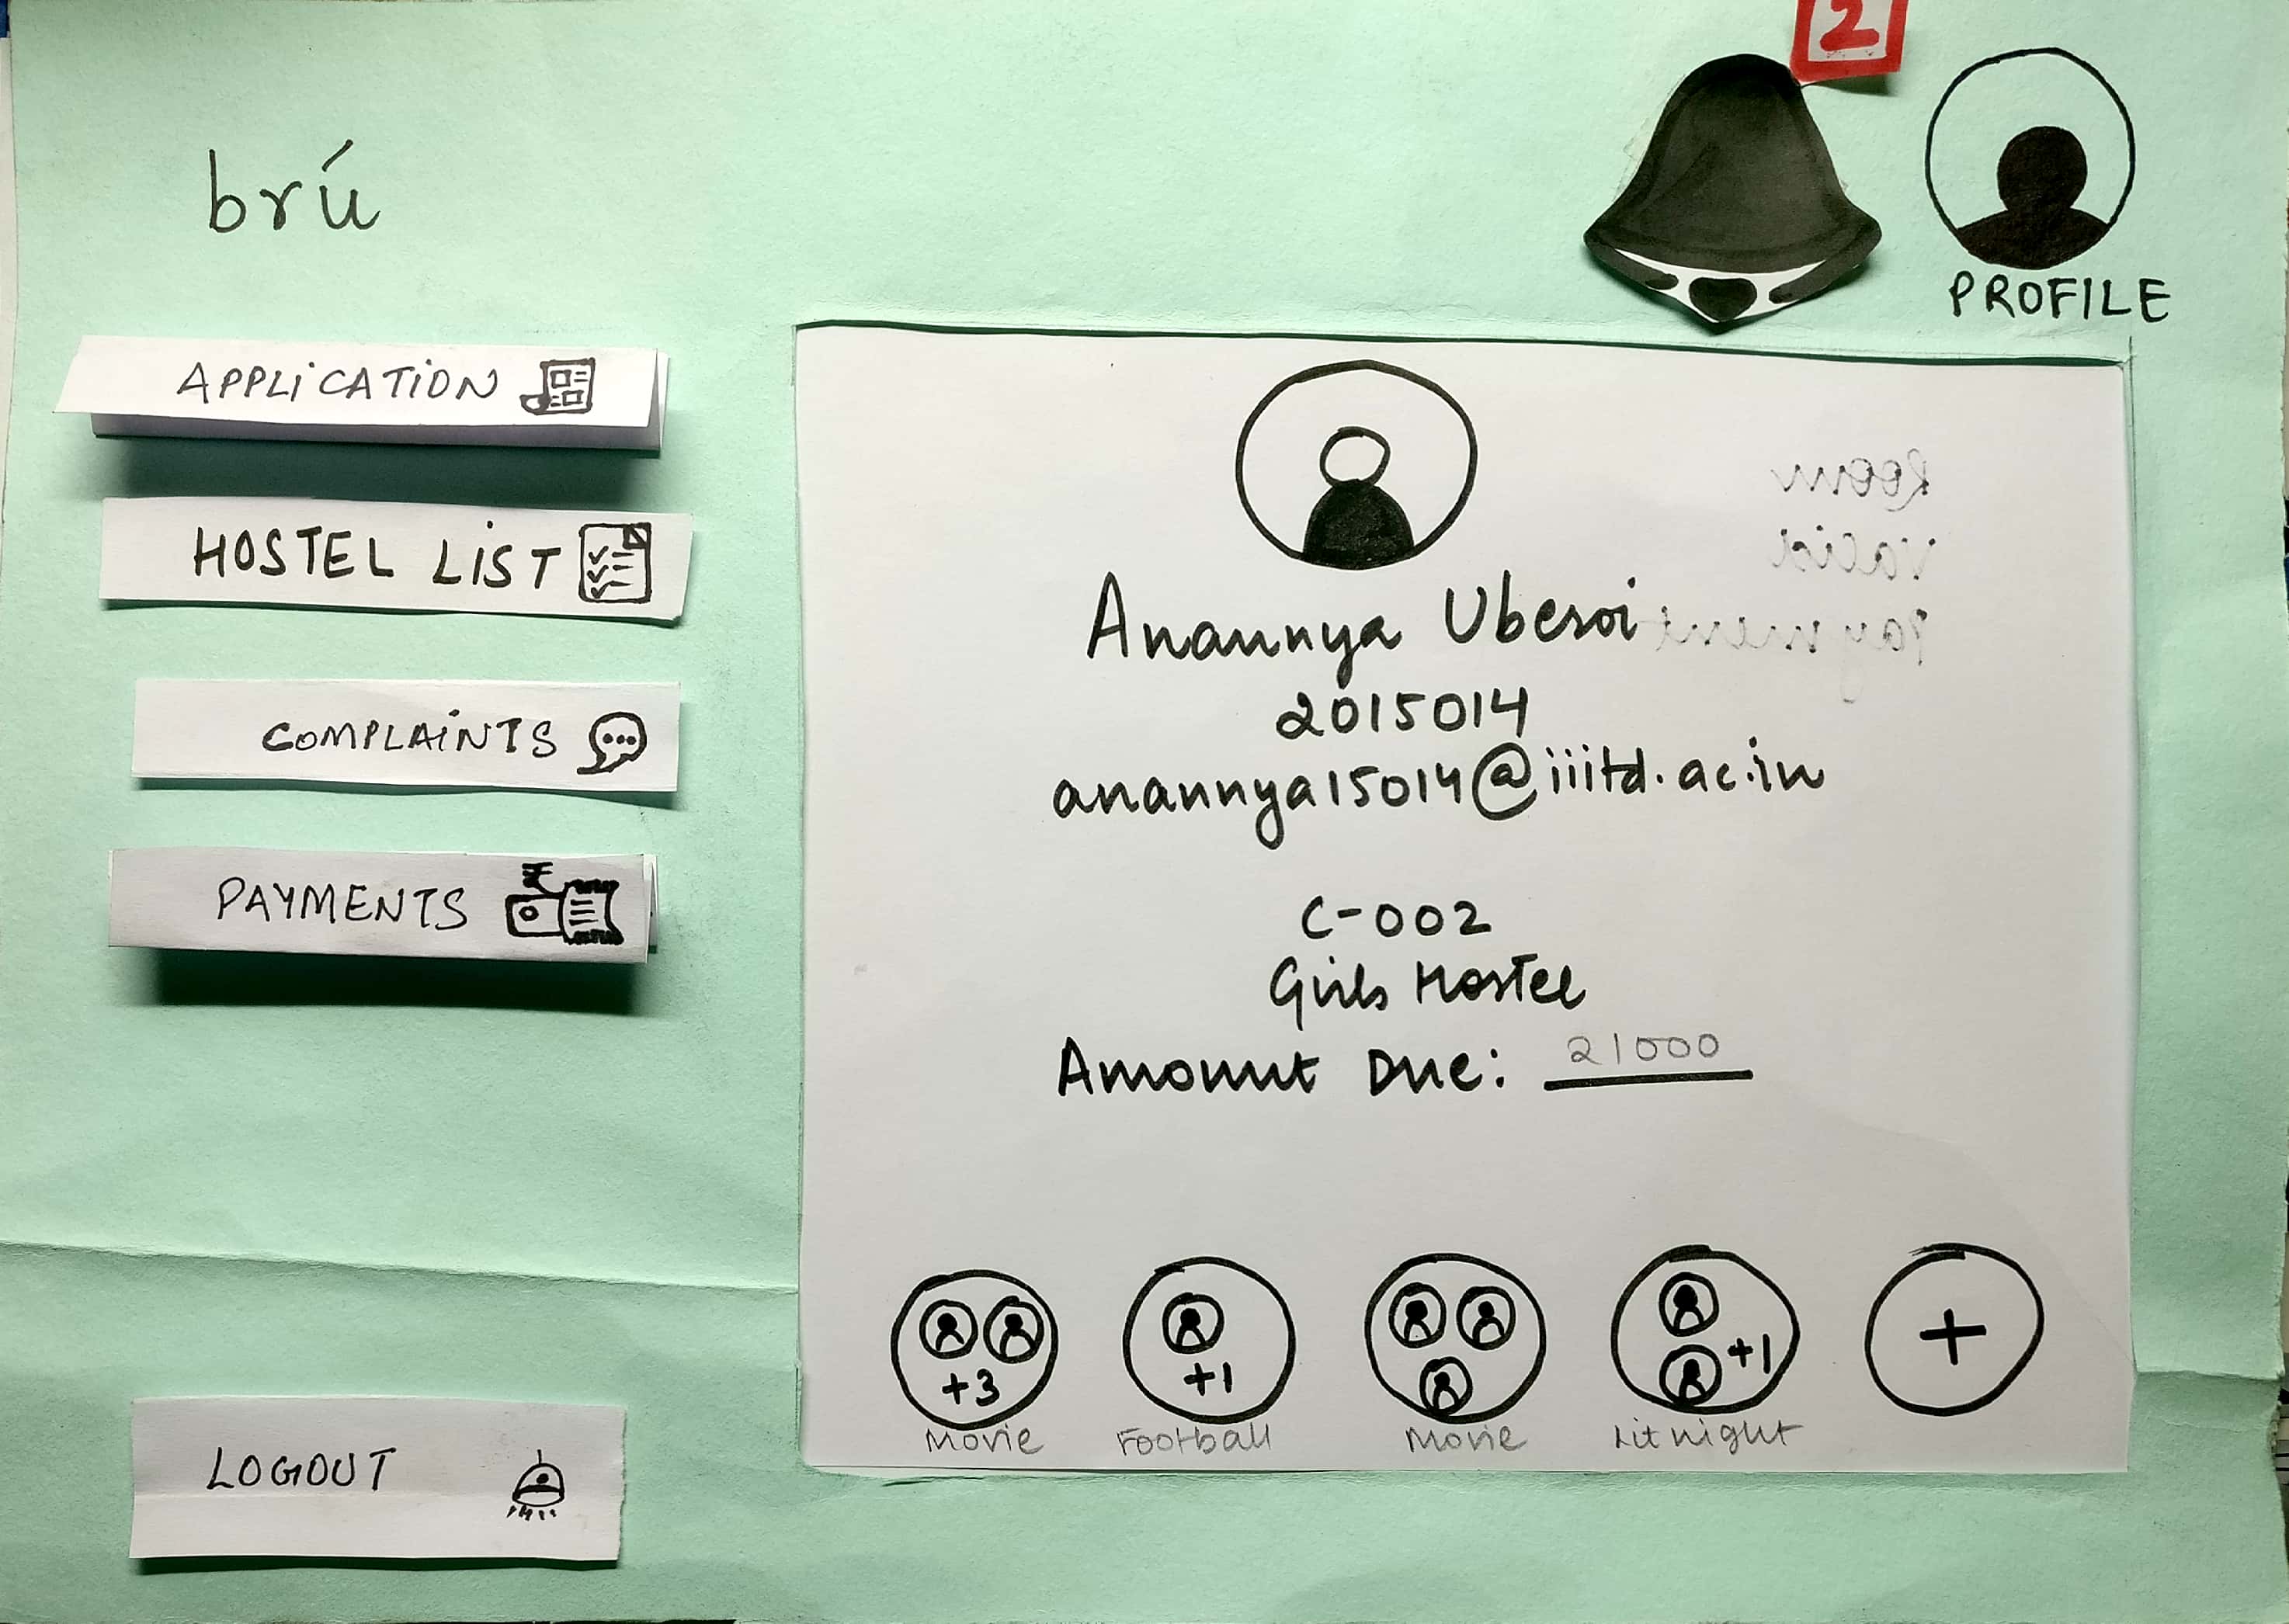 2
brú
PROFILE
APPLiCATiON
HOSTEL LiST
COMPLAiNTS
PAYMENTS
LOGOUT
Room
Valid
Payment
Anannya Uberoi
2015014
anannya15014@iiitd.ac.in
C-002
Girls Hostel
Amount Due: 21000
+3
+1
+1
+
Movie
Football
Movie
Lit night